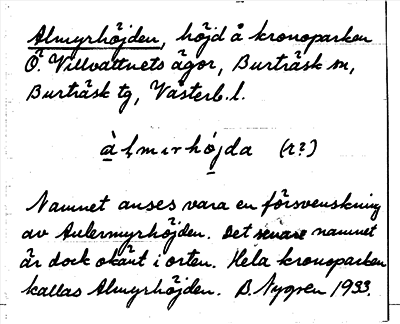 Almyrhöjden, höjd å kronoparken
Ö. Villvattnets ägor, Burträsk sn,
Burträsk tg, Västerb. l.
àlmırhójda (r?)
Namnet anses vara en försvenskning
av Aulermyrhöjden. Det senare namnet
är dock okänt i orten. Hela kronoparken
kallas Almyrhöjden. B. Nygren 1933.